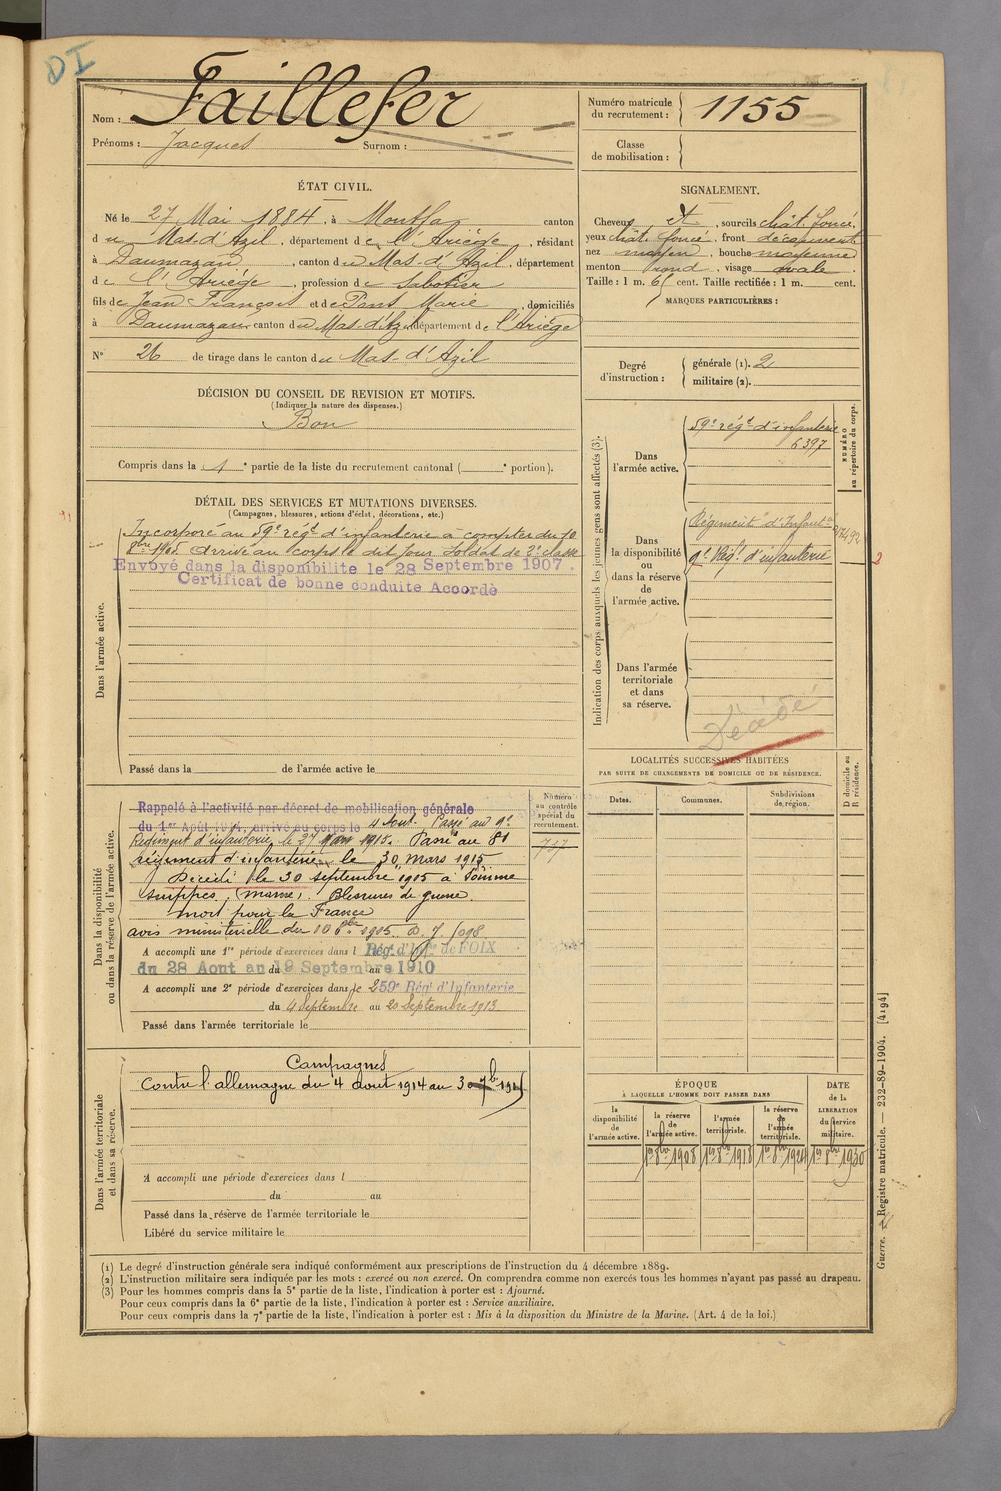 DI
Nom : Faillefer
Prénoms : Jacques Surnom :
Numéro matricule du recrutement : 1155
Classe de mobilisation :
ÉTAT CIVIL.
Né le 27 Mai 1884, à Montfa canton
du Mas-d'Azil, département de l'Ariège, résidant
à Daumazan, canton du Mas-d'Azil, département
de l'Ariège, profession de Sabotier
fils de Jean François et de Pont Marie, domiciliés
à Daumazan canton du Mas-d'Azil département de l'Ariège
N° 26 de tirage dans le canton du Mas-d'Azil
SIGNALEMENT.
Cheveux et, sourcils chât. foncé,
yeux chât. foncé, front découvert
nez moyen, bouche moyenne
menton rond, visage ovale.
Taille : 1 m. 65 cent. Taille rectifiée : 1 m. cent.
MARQUES PARTICULIÈRES :
Degré d'instruction : générale (1). 2
militaire (2).
DÉCISION DU CONSEIL DE REVISION ET MOTIFS.
(Indiquer la nature des dispenses.)
Bon
Compris dans la 1e partie de la liste du recrutement cantonal ( e portion).
DÉTAIL DES SERVICES ET MUTATIONS DIVERSES.
(Campagnes, blessures, actions d'éclat, décorations, etc.)
Dans l'armée active.
Incorporé au 59e régt d'infanterie à compter du 10
8bre 1905. Arrivé au corps le dit jour Soldat de 2e classe
Envoyé dans la disponibilité le 28 Septembre 1907.
Certificat de bonne conduite Accordé
Passé dans la de l'armée active le
Indication des corps auxquels les jeunes gens sont affectés (3).
NUMÉRO au répertoire du corps.
Dans l'armée active.
59e régt d'infanterie
6397
Dans la disponibilité ou dans la réserve de l'armée active.
Régiment d'Infantie
9e Régt d'infanterie
2
Dans l'armée territoriale et dans sa réserve.
Décédé
LOCALITÉS SUCCESSIVES HABITÉES
PAR SUITE DE CHANGEMENTS DE DOMICILE OU DE RÉSIDENCE.
Dates. Communes. Subdivisions de région. D domicile ou R résidence.
Dans la disponibilité ou dans la réserve de l'armée active.
Numéro au contrôle spécial du recrutement.
Rappelé à l'activité par décret de mobilisation générale
du 1er Août 1914, arrivé au corps le 4 Aout. Passé au 9e
Régiment d'infanterie le 27 Mars 1915. Passé au 81
régiment d'infanterie le 30 mars 1915
Décédé le 30 septembre 1915 à Somme
suippes (marne). Blessures de guerre.
mort pour la France
avis ministérielle du 10 1915.
A accompli une 1re période d'exercices dans l Régt d'Infie de FOIX
du 28 Aout au 19 Septembre 1910
A accompli une 2e période d'exercices dans le 259e Régt d'Infanterie
du 4 Septembre au 20 Septembre 1913
Passé dans l'armée territoriale le
Dans l'armée territoriale et dans sa réserve.
Campagnes
Contre l'allemagne du 4 aout 1914 au 30 7b 1915
A accompli une période d'exercices dans l
du au
Passé dans la réserve de l'armée territoriale le
Libéré du service militaire le
ÉPOQUE
À LAQUELLE L'HOMME DOIT PASSER DANS
la disponibilité de l'armée active. la réserve de l'armée active. l'armée territoriale. la réserve de l'armée territoriale.
DATE de la LIBÉRATION du service militaire.
1er 8bre 1908 1er 8bre 1918 1er 8bre 1924 1er 8bre 1930
Guerre. — Registre matricule. — 232-89-1904. [4194]
(1) Le degré d'instruction générale sera indiqué conformément aux prescriptions de l'instruction du 4 décembre 1889.
(2) L'instruction militaire sera indiquée par les mots : exercé ou non exercé. On comprendra comme non exercés tous les hommes n'ayant pas passé au drapeau.
(3) Pour les hommes compris dans la 5e partie de la liste, l'indication à porter est : Ajourné.
Pour ceux compris dans la 6e partie de la liste, l'indication à porter est : Service auxiliaire.
Pour ceux compris dans la 7e partie de la liste, l'indication à porter est : Mis à la disposition du Ministre de la Marine. (Art. 4 de la loi.)